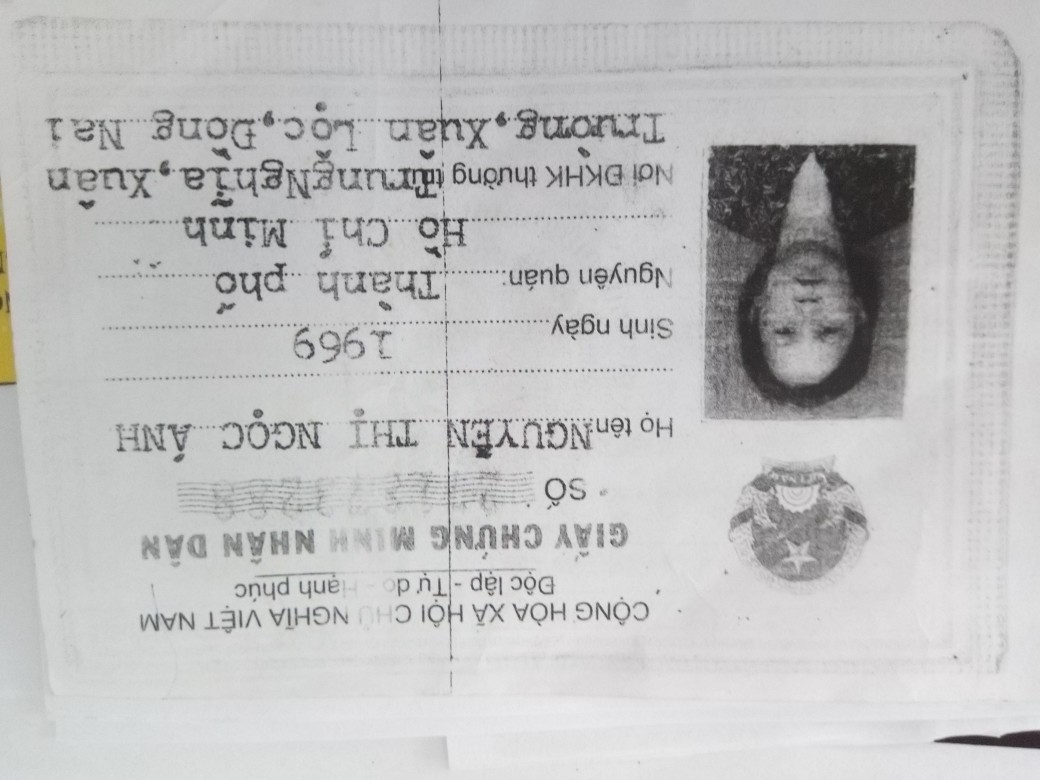 CỘNG HÒA XÃ HỘI CHỦ NGHĨA VIỆT NAM
Độc lập - Tự do - Hạnh phúc
GIẤY CHỨNG MINH NHÂN DÂN
SỐ
Họ tên NGUYỄN THỊ NGỌC ÁNH
Sinh ngày 1969
Nguyên quán: Thành phố
Hồ Chí Minh
Nơi ĐKHK thường trú Trung Nghĩa, Xuân
Trường, Xuân Lộc, Đồng Nai